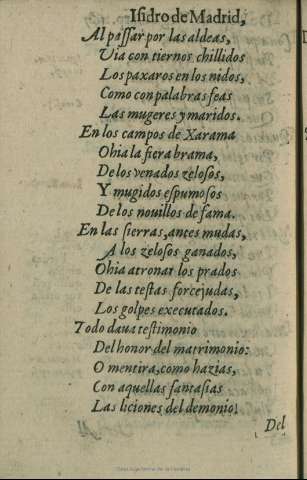 Isidro de Madrid,
Al passar por las aldeas,
Uia con tiernos chillidos
Los paxaros en los nidos,
Como con palabras feas
Las mugeres y maridos.
En los campos de Xarama
Ohia la fiera brama,
De los venados zelosos,
Y mugidos espumosos
De los nouillos de fama.
En las sierras, antes mudas,
A los zelosos ganados,
Ohia atronar los prados
De las testas forcejudas,
Los golpes executados.
Todo daua testimonio
Del honor del matrimonio:
O mentira, como hazias,
Con aquellas fantasias
Las liciones del demonio!
Del